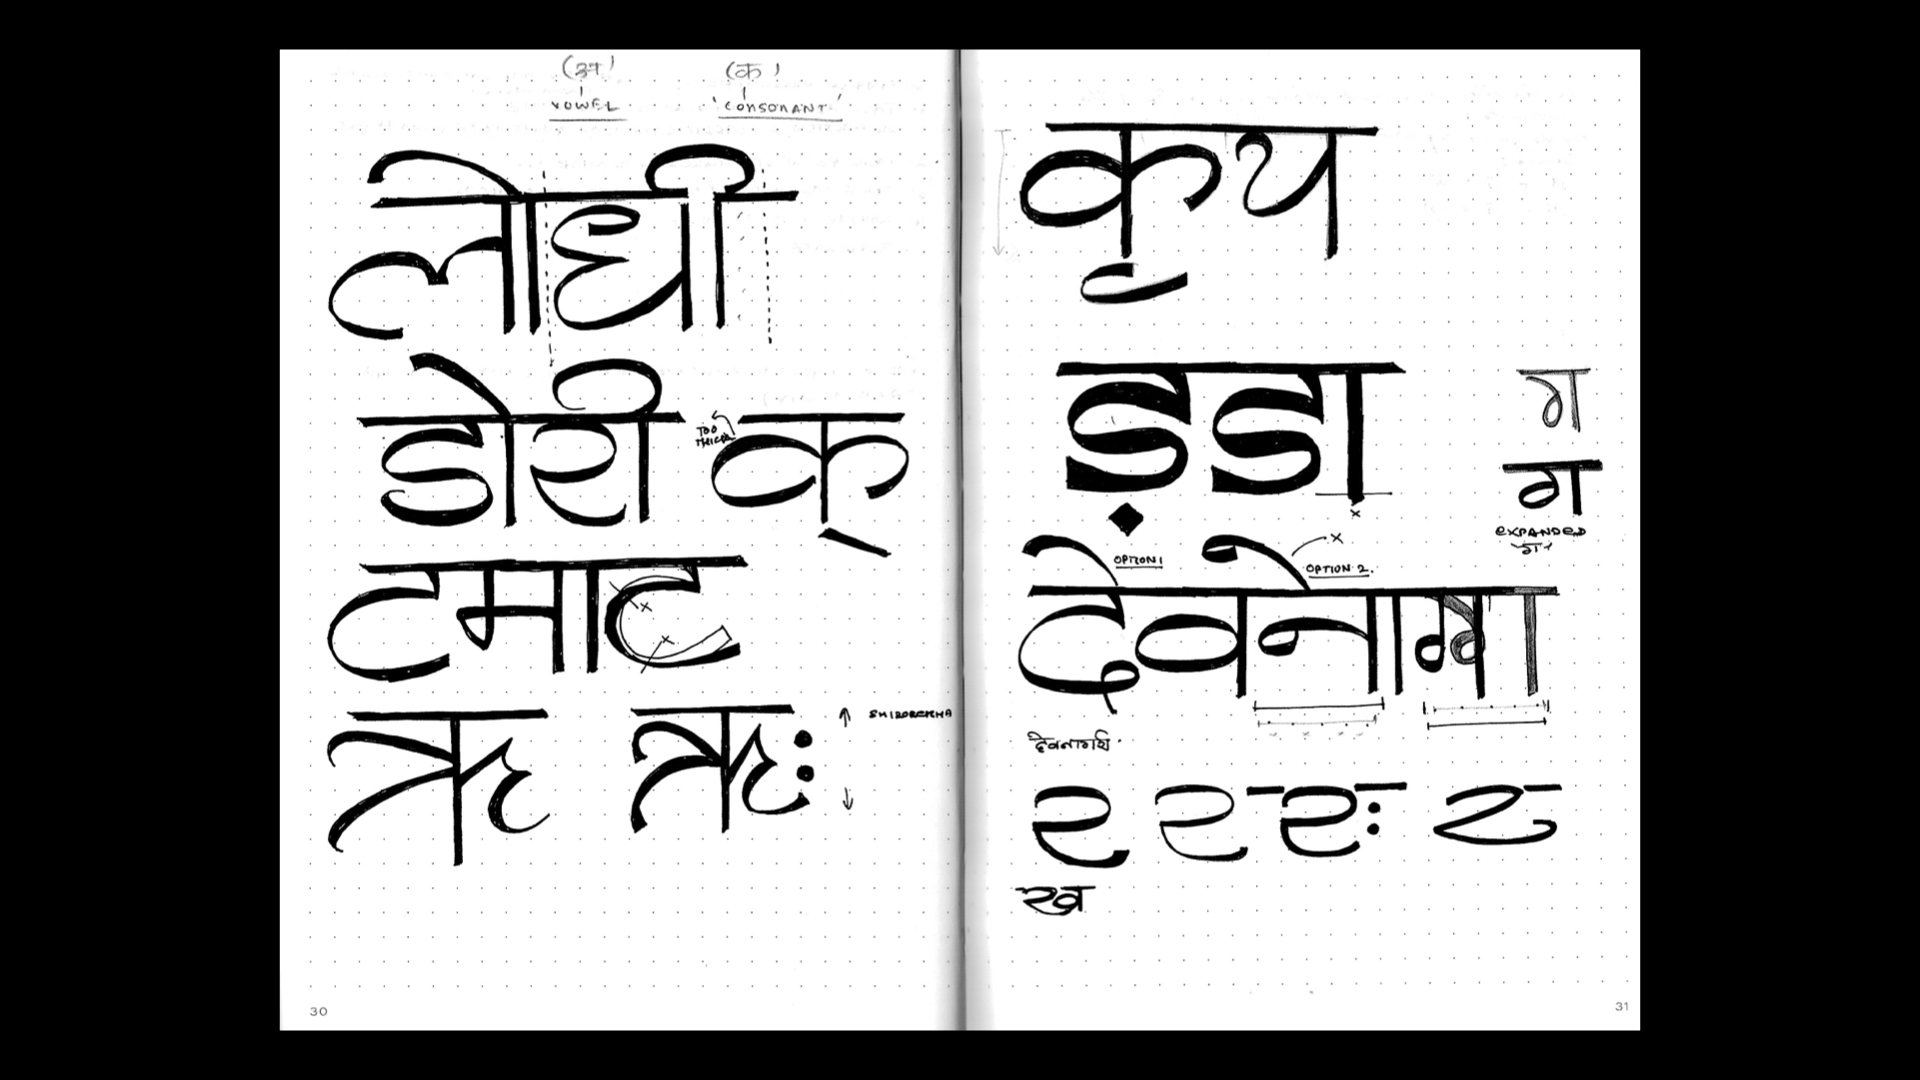 (अ) (क)
VOWEL 'CONSONANT'
लोधी
डोरी क्
TOO THICK
टमाट
ऋ ऋः
SHIROREKHA
30
कृय
ड़डा
ग
ग
EXPANDED
OPTION 1
OPTION 2.
देवनेागा
र र रः ट
ख
31